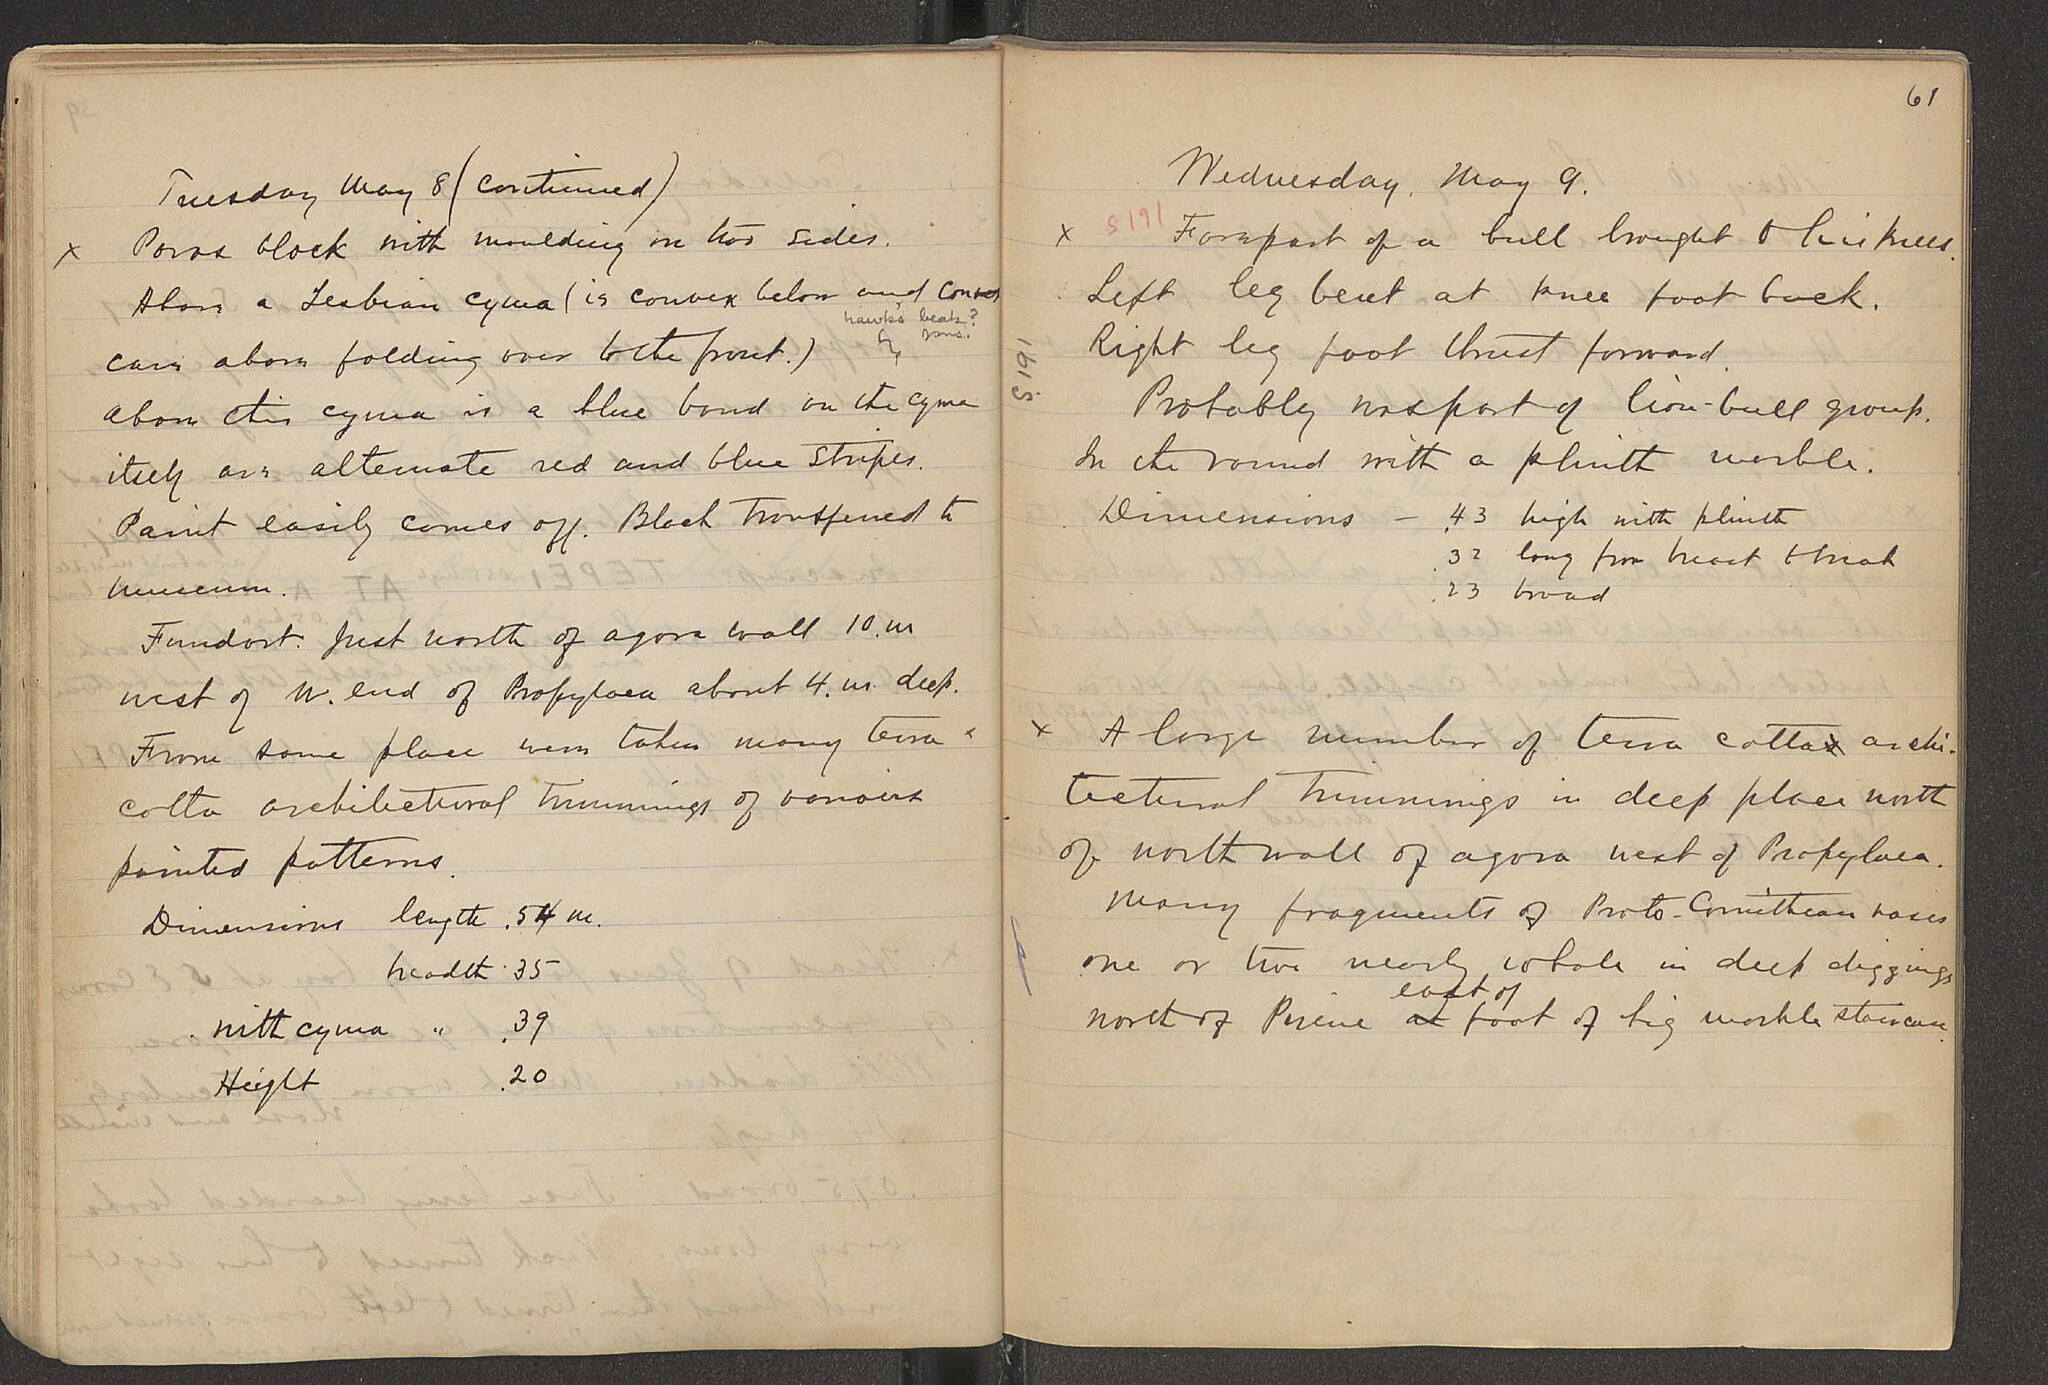 Tuesday May 8 (continued)
x Poros block with moulding on two sides.
Above a Lesbian cyma (is convex below and concave
hawk's beak?
cave above folding over to the front.)
above this cyma is a blue band on the cyma
itself are alternate red and blue stripes.
Paint easily comes off. Block transferred to
museum.
Fundort. Just north of agora wall 10.m
west of W. end of Propylaea about 4.m. deep.
From same place were taken many terra
cotta architectural trimmings of various
painted patterns.
Dimensions length .54 m.
breadth .35
with cyma " .39
Height .20
61
Wednesday, May 9.
x S 191 Forepart of a bull brought to his knees.
Left leg bent at knee foot back.
Right leg foot thrust forward.
S 191
Probably was part of lion-bull group.
In the round with a plinth marble.
Dimensions – .43 high with plinth
.32 long from breast to break
.23 broad
x A large number of terra cotta archi-
tectural trimmings in deep place north
of north wall of agora west of Propylaea.
Many fragments of Proto-Corinthian vases
one or two nearly whole in deep diggings
east of
north of Pirene at foot of big marble staircase.